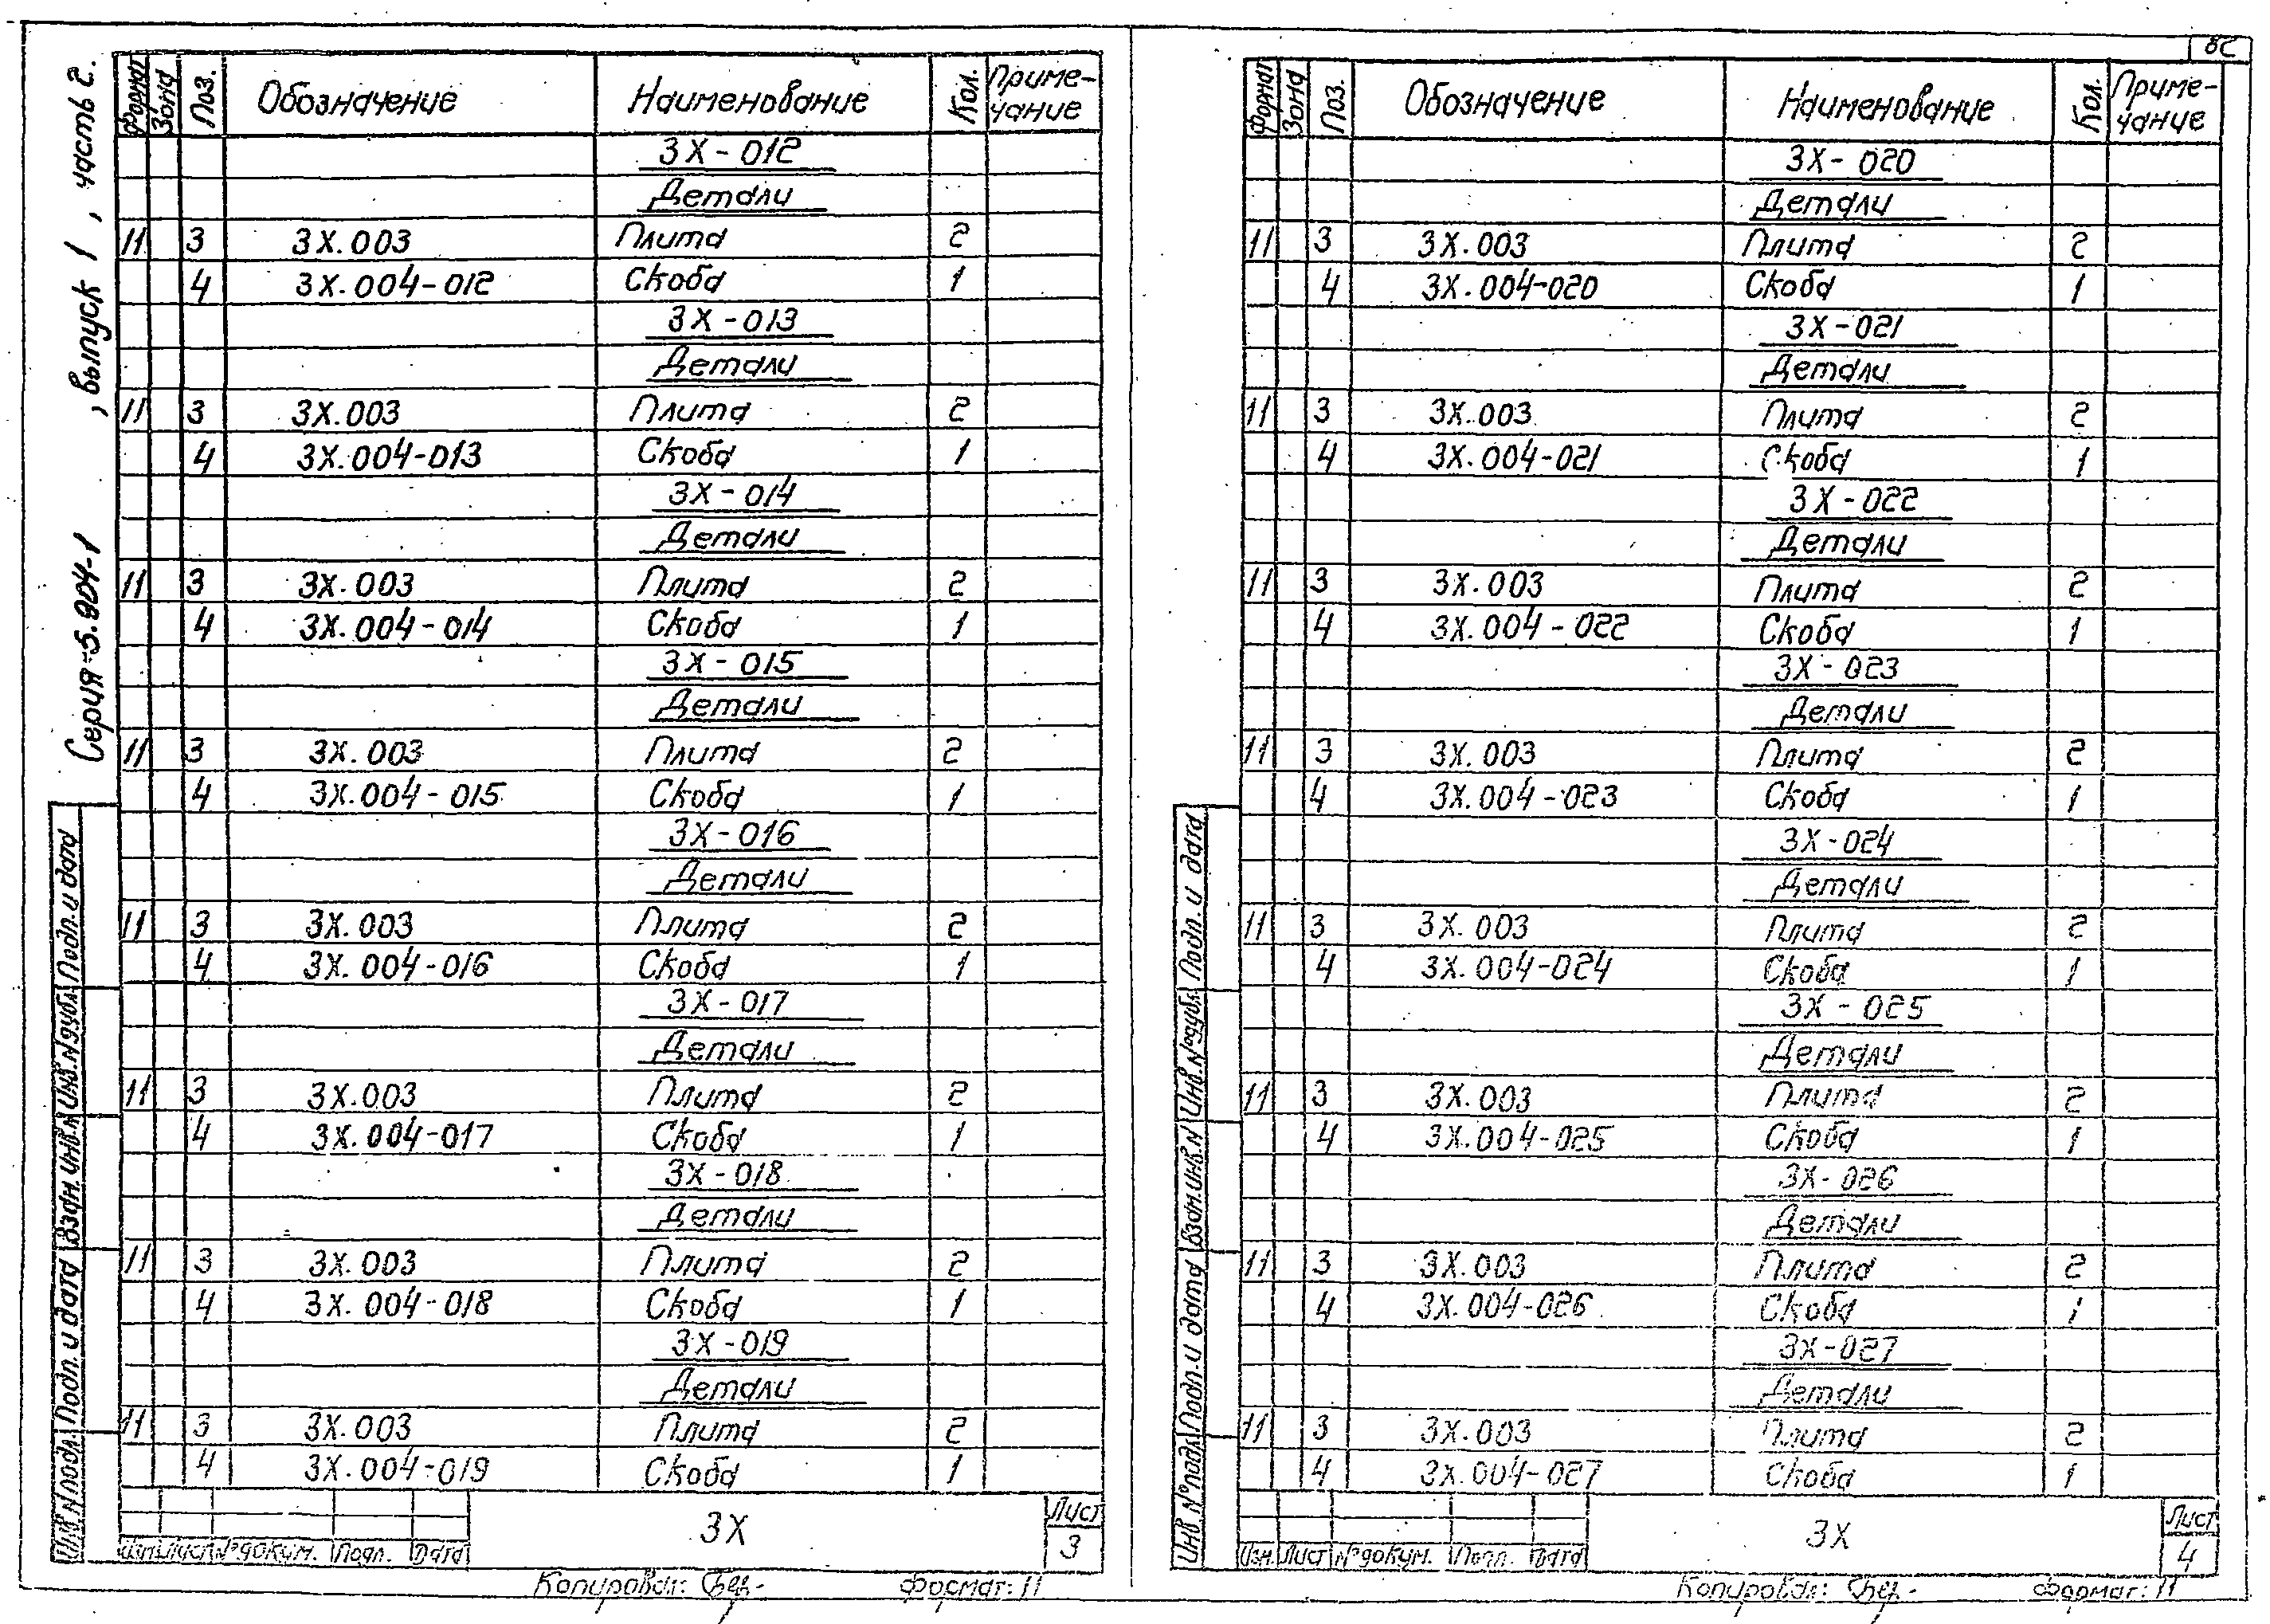 Серия 5.904-1, выпуск 1, часть 2.
Формат Зона Поз. Обозначение Наименование Кол. Приме-
чание
3Х-012
Детали
11 3 3Х.003 Плита 2
4 3Х.004-012 Скоба 1
3Х-013
Детали
11 3 3Х.003 Плита 2
4 3Х.004-013 Скоба 1
3Х-014
Детали
11 3 3Х.003 Плита 2
4 3Х.004-014 Скоба 1
3Х-015
Детали
11 3 3Х.003 Плита 2
4 3Х.004-015 Скоба 1
3Х-016
Детали
11 3 3Х.003 Плита 2
4 3Х.004-016 Скоба 1
3Х-017
Детали
11 3 3Х.003 Плита 2
4 3Х.004-017 Скоба 1
3Х-018
Детали
11 3 3Х.003 Плита 2
4 3Х.004-018 Скоба 1
3Х-019
Детали
11 3 3Х.003 Плита 2
4 3Х.004-019 Скоба 1
Инв.№подл. Подп. и дата Взам.инв.№ Инв.№дубл. Подп. и дата
Изм. Лист №докум. Подп. Дата
3Х
Лист
3
Копировал: Формат: 11
28
Формат Зона Поз. Обозначение Наименование Кол. Приме-
чание
3Х-020
Детали
11 3 3Х.003 Плита 2
4 3Х.004-020 Скоба 1
3Х-021
Детали
11 3 3Х.003 Плита 2
4 3Х.004-021 Скоба 1
3Х-022
Детали
11 3 3Х.003 Плита 2
4 3Х.004-022 Скоба 1
3Х-023
Детали
11 3 3Х.003 Плита 2
4 3Х.004-023 Скоба 1
3Х-024
Детали
11 3 3Х.003 Плита 2
4 3Х.004-024 Скоба 1
3Х-025
Детали
11 3 3Х.003 Плита 2
4 3Х.004-025 Скоба 1
3Х-026
Детали
11 3 3Х.003 Плита 2
4 3Х.004-026 Скоба 1
3Х-027
Детали
11 3 3Х.003 Плита 2
4 3Х.004-027 Скоба 1
Инв.№подл. Подп. и дата Взам.инв.№ Инв.№дубл. Подп. и дата
Изм. Лист №докум. Подп. Дата
3Х
Лист
4
Копировал: Формат: 11